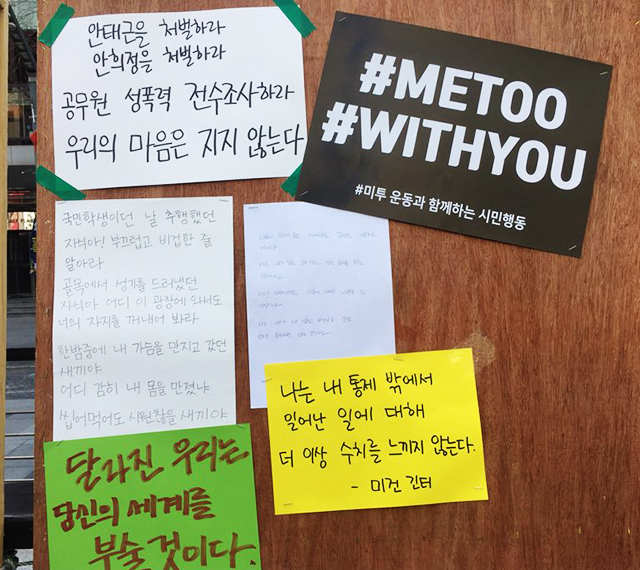 안태근을 처벌하라
안희정을 처벌하라
공무원 성폭력 전수조사하라
우리의 마음은 지지 않는다
#METOO
#WITHYOU
#미투 운동과 함께하는 시민행동
국민학생이던 날 추행했던
자식아! 부끄럽고 비겁한 줄
알아라
골목에서 성기를 드러냈던
자식아 어디 이 광장에 와서도
너의 자지를 꺼내어 봐라
한밤중에 내 가슴을 만지고 갔던
새끼야
어디 감히 내 몸을 만졌냐
씹어먹어도 시원찮을 새끼야
나는 내 통제 밖에서
일어난 일에 대해
더 이상 수치를 느끼지 않는다.
- 미건 긴터
달라진 우리는
당신의 세계를
부술 것이다.